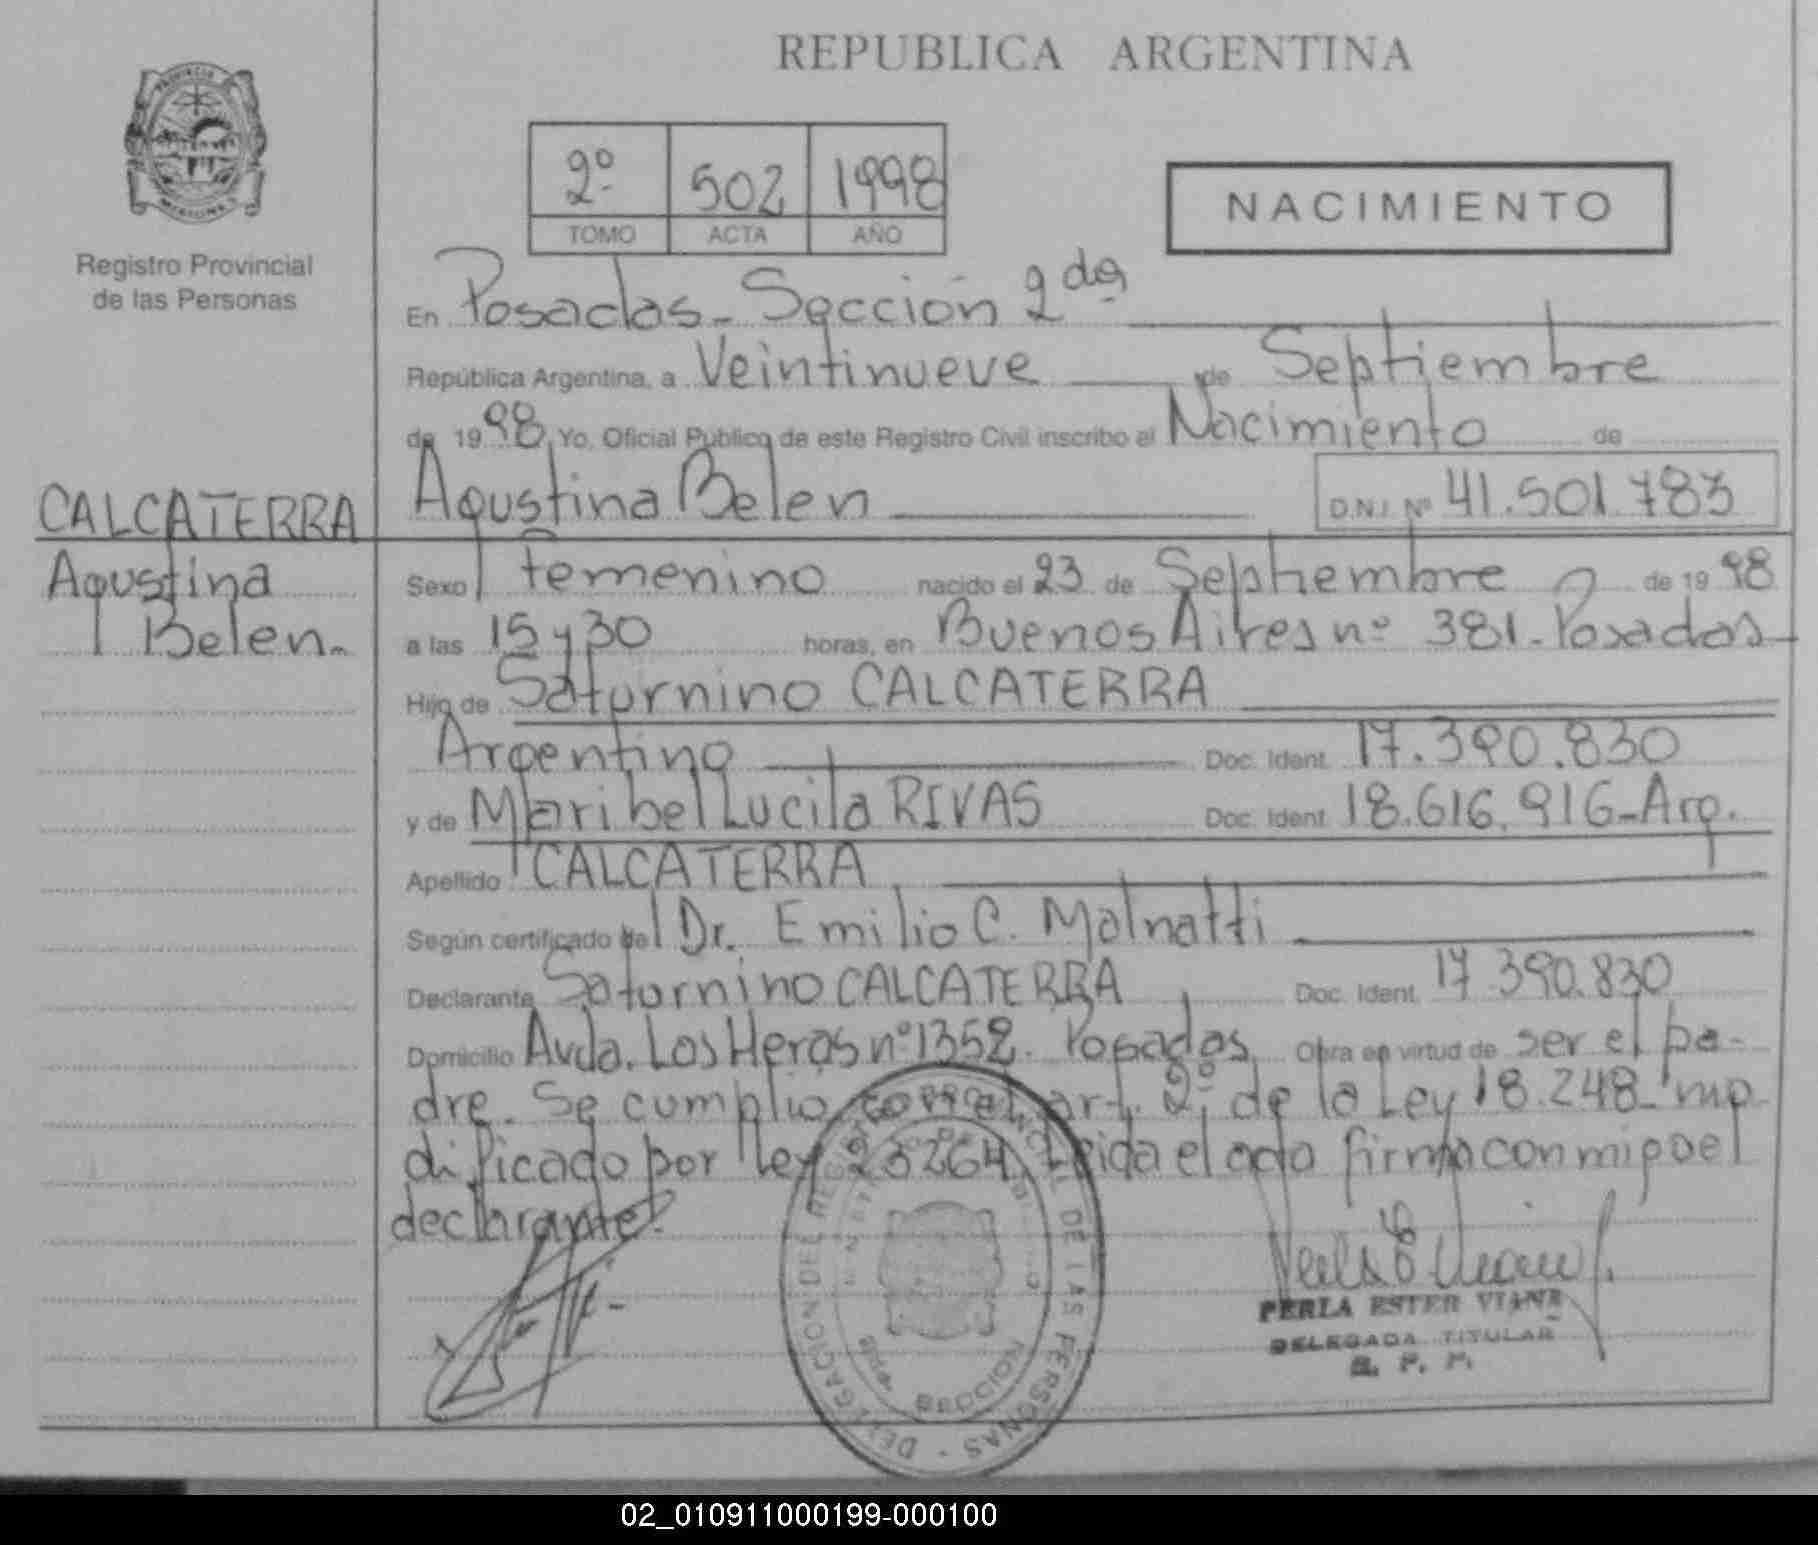 REPUBLICA ARGENTINA
PROVINCIA
MISIONES
Registro Provincial
de las Personas
2º 502 1998
TOMO ACTA AÑO
NACIMIENTO
En Posadas - Sección 2da
República Argentina, a Veintinueve de Septiembre
de 1998 Yo, Oficial Público de este Registro Civil inscribo el Nacimiento de
CALCATERRA
Agustina Belen D.N.I. Nº 41.501.783
Agustina
Belen.
Sexo femenino nacido el 23 de Septiembre de 1998
a las 15 y 30 horas, en Buenos Aires nº 381 - Posadas
Hijo de Saturnino CALCATERRA
Argentino Doc. Ident. 17.390.830
y de Maribel Lucila RIVAS Doc. Ident. 18.616.916-Arg.
Apellido CALCATERRA
Según certificado del Dr. Emilio C. Malnatti
Declarante Saturnino CALCATERRA Doc. Ident. 17.390.830
Domicilio Avda. Las Heras nº 1352. Posadas Obra en virtud de ser el pa-
dre. Se cumplió con el art. 2º de la Ley 18.248 mo-
dificado por ley 23264. Leida el acta firma conmigo el
declarante.
DELEGACION DEL REGISTRO PROVINCIAL DE LAS PERSONAS
PERLA ESTER VIANA
DELEGADA TITULAR
R. P. P.
02_010911000199-000100